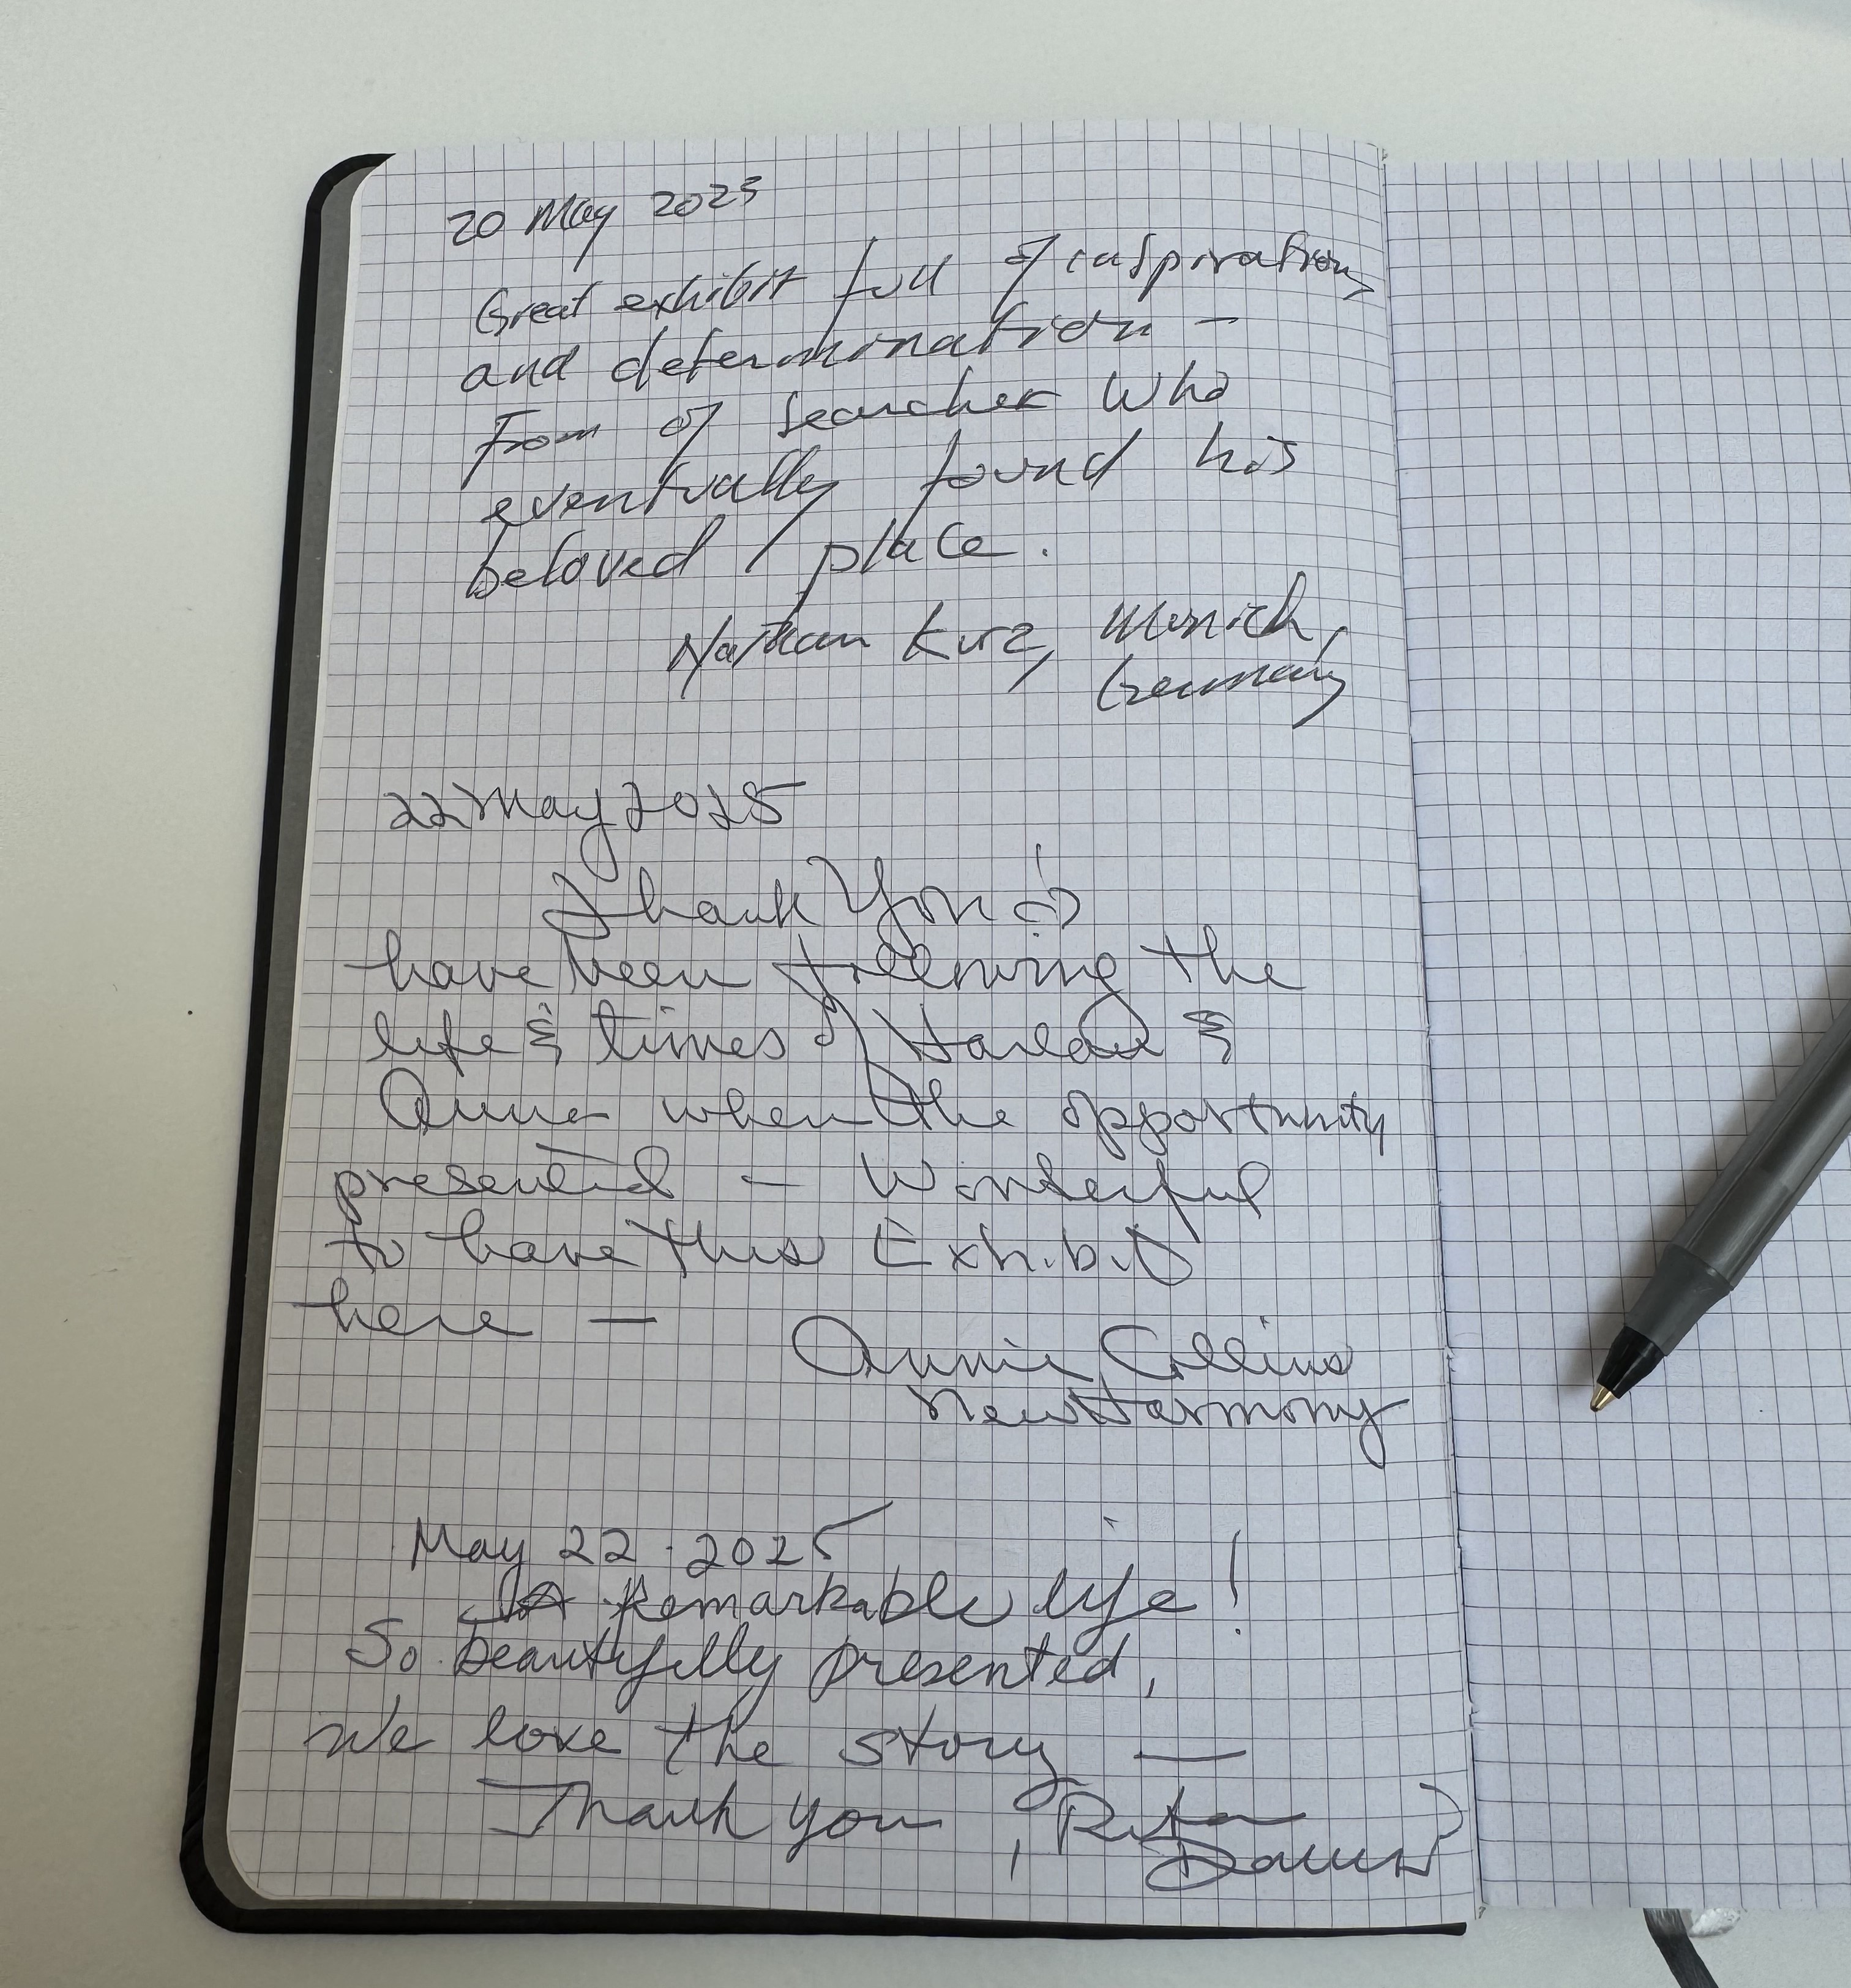 20 May 2025
Great exhibit full of inspiration,
and determination –
From of searcher who
eventually found his
beloved / place.
Nathan Kurz, Munich,
Germany
22 May 2025
Thank You
have been following the
life & times of Harlan &
Anna when the opportunity
presented – Wonderful
to have this Exhibit
here —
Annie Collins
New Harmony
May 22 2025
A Remarkable life!
So beautifully presented,
We love the story —
Thank you, Rita